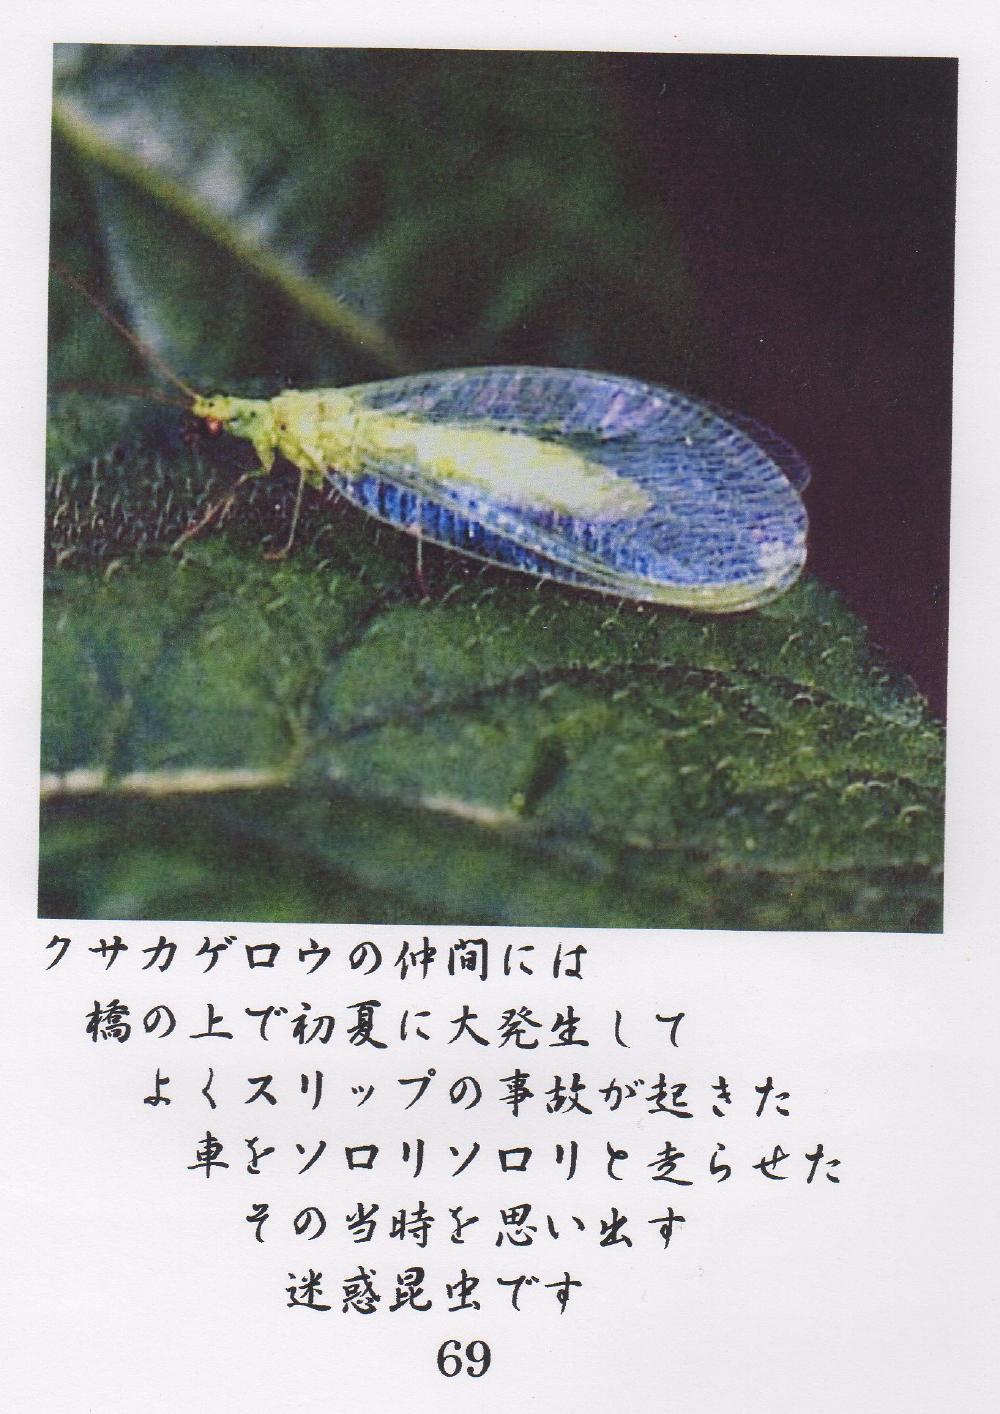 クサカゲロウの仲間には
橋の上で初夏に大発生して
よくスリップの事故が起きた
車をソロリソロリと走らせた
その当時を思い出す
迷惑昆虫です
69